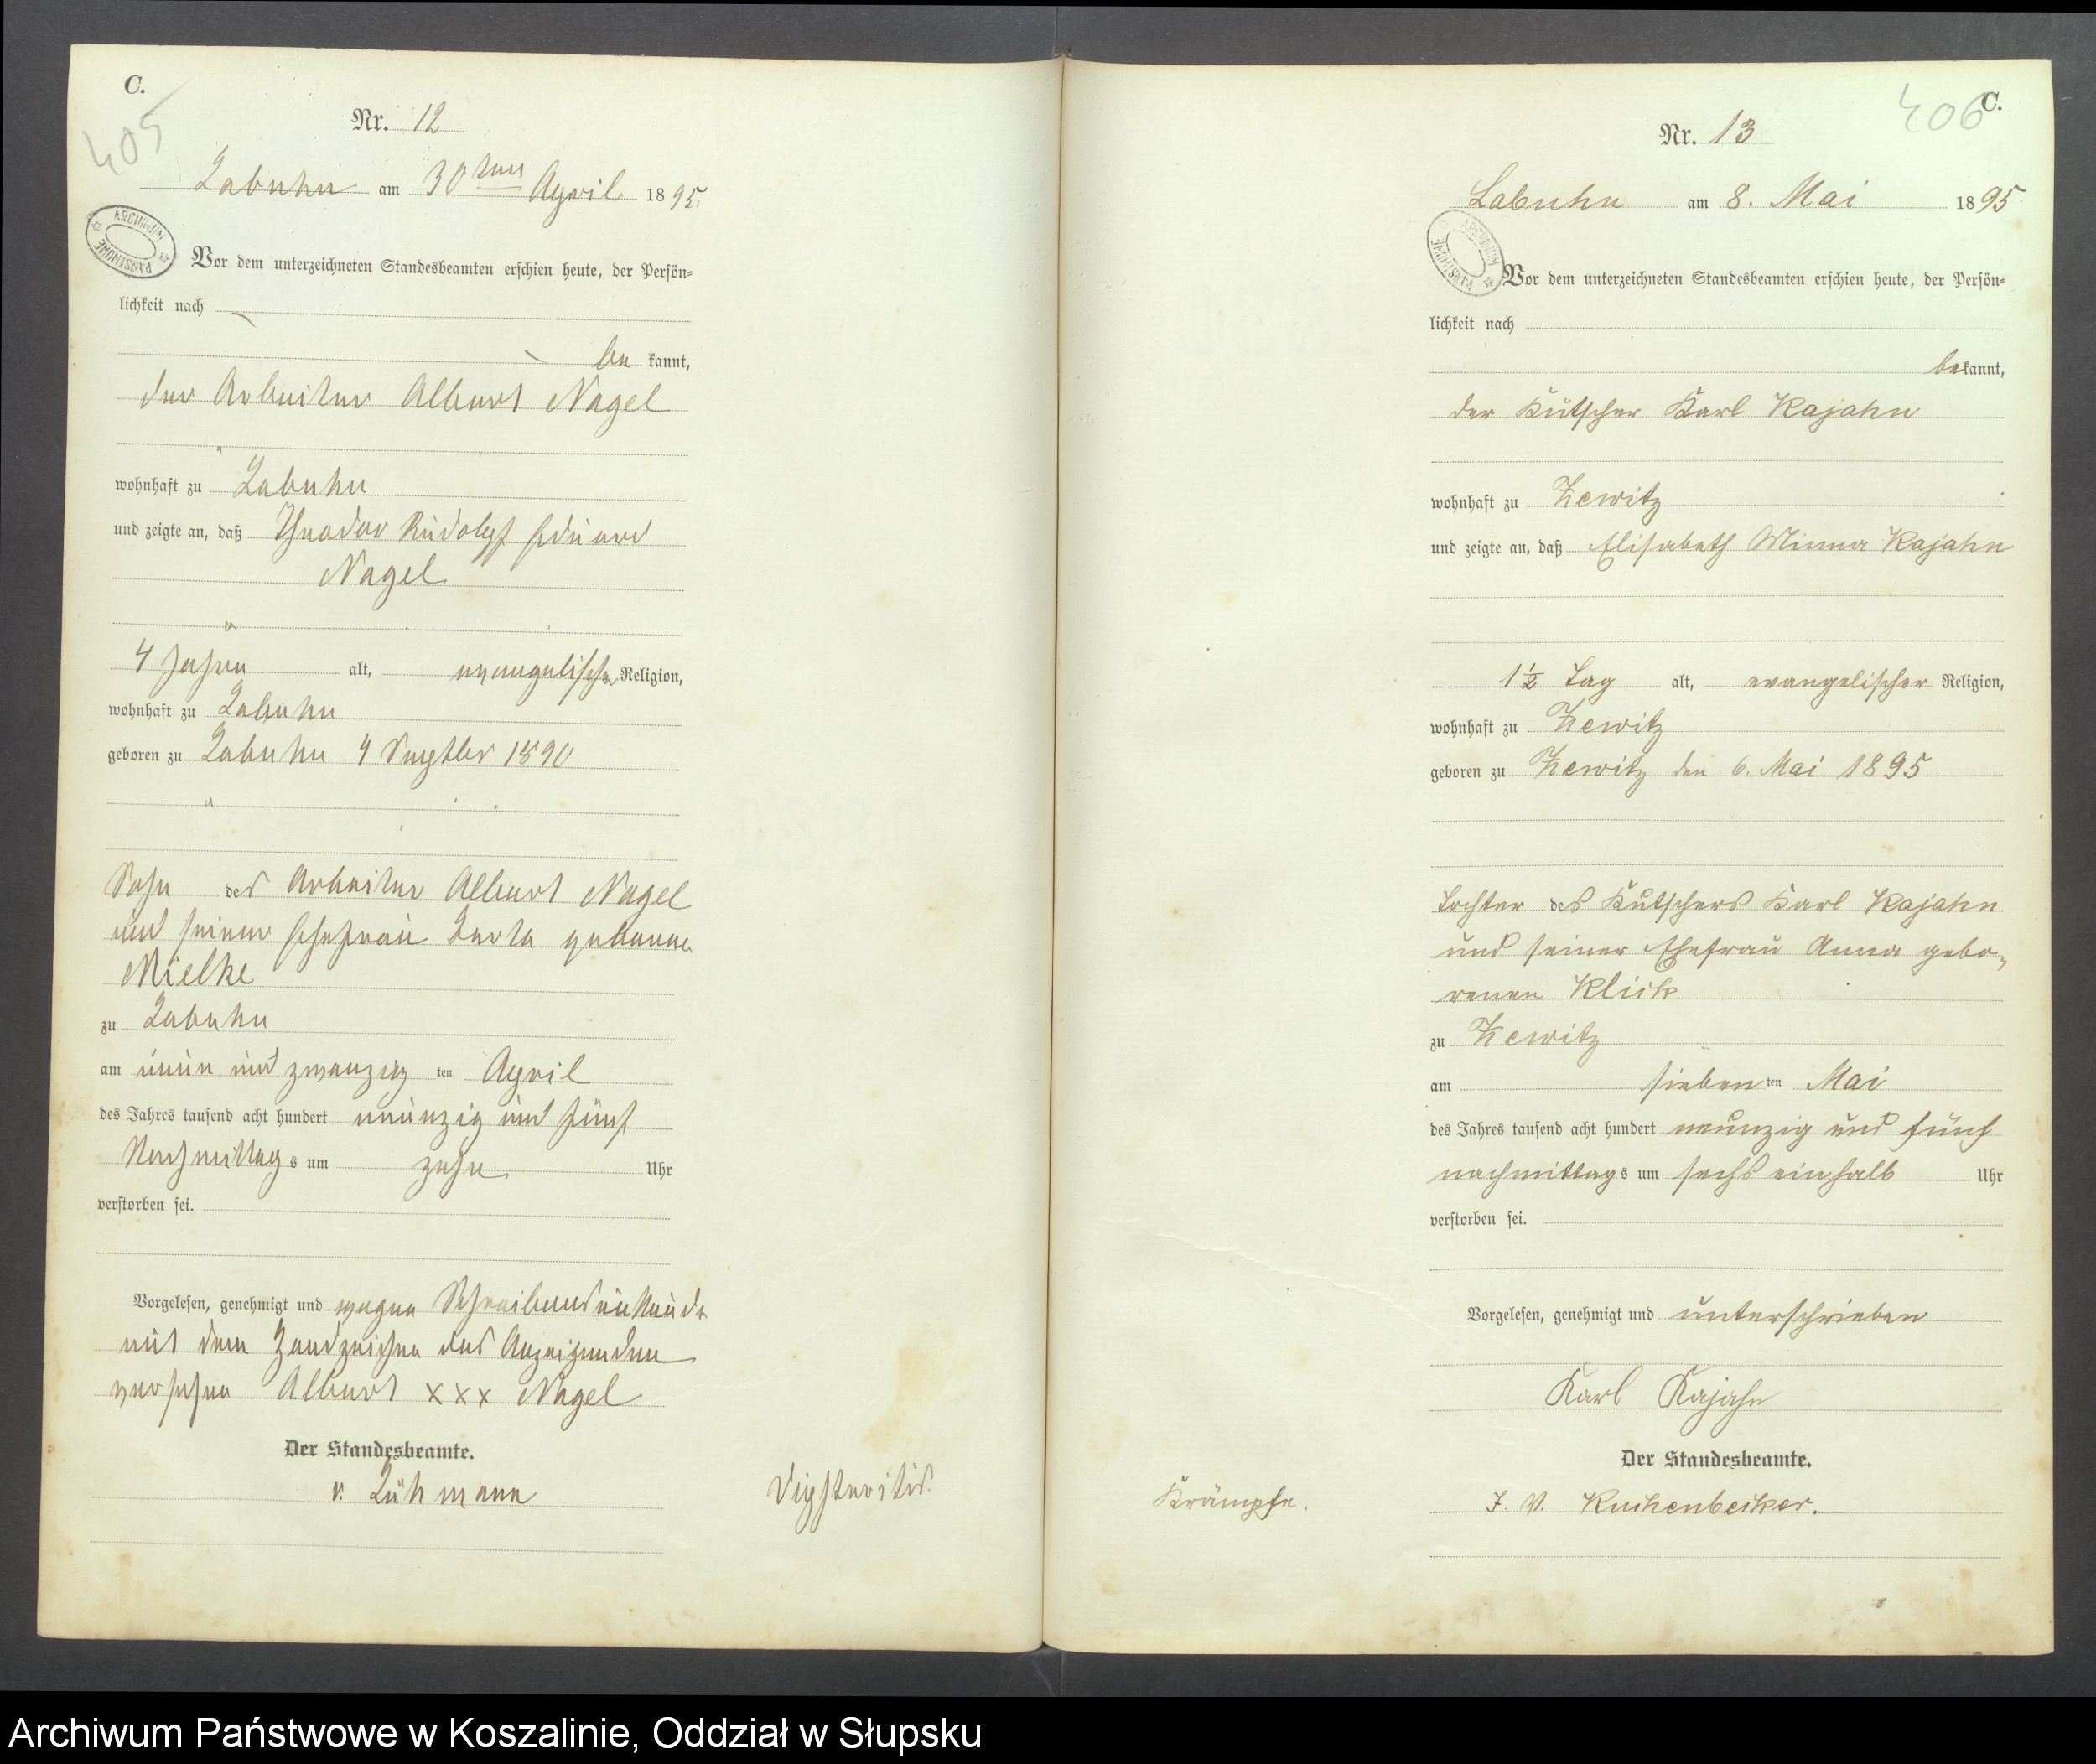 C.
405
Nr. 12
Labuhn am 30ten April 1895.
ARCHIWUM PAŃSTWOWE
Vor dem unterzeichneten Standesbeamten erschien heute, der Persön-
lichkeit nach
be kannt,
der Arbeiter Albert Nagel
wohnhaft zu Labuhn
und zeigte an, daß Theodor Rudolph Eduard
Nagel
4 Jahre alt, evangelischer Religion,
wohnhaft zu Labuhn
geboren zu Labuhn 4 Septbr 1890
Sohn des Arbeiter Albert Nagel
und seiner Ehefrau geborene
Mielke
zu Labuhn
am neun und zwanzig ten April
des Jahres tausend acht hundert neunzig und fünf
Nachmittags um zehn Uhr
verstorben sei.
Vorgelesen, genehmigt und wegen Schreibensunkunde
mit dem Handzeichen des Anzeigenden
versehen Albert xxx Nagel
Der Standesbeamte.
v. Lühmann
Diphteritis.
C.
406
Nr. 13
Labuhn am 8. Mai 1895
ARCHIWUM PAŃSTWOWE
Vor dem unterzeichneten Standesbeamten erschien heute, der Persön-
lichkeit nach
bekannt,
der Kutscher Karl Kajahn
wohnhaft zu Zewitz
und zeigte an, daß Elisabeth Minna Kajahn
1½ Tag alt, evangelischer Religion,
wohnhaft zu Zewitz
geboren zu Zewitz den 6. Mai 1895
Tochter des Kutschers Karl Kajahn
und seiner Ehefrau Anna gebo-
renen Klick
zu Zewitz
am sieben ten Mai
des Jahres tausend acht hundert neunzig und fünf
nachmittags um sechs einhalb Uhr
verstorben sei.
Vorgelesen, genehmigt und unterschrieben
Karl Kajahn
Der Standesbeamte.
J. V. Kuchenbecker.
Krämpfe.
Archiwum Państwowe w Koszalinie, Oddział w Słupsku